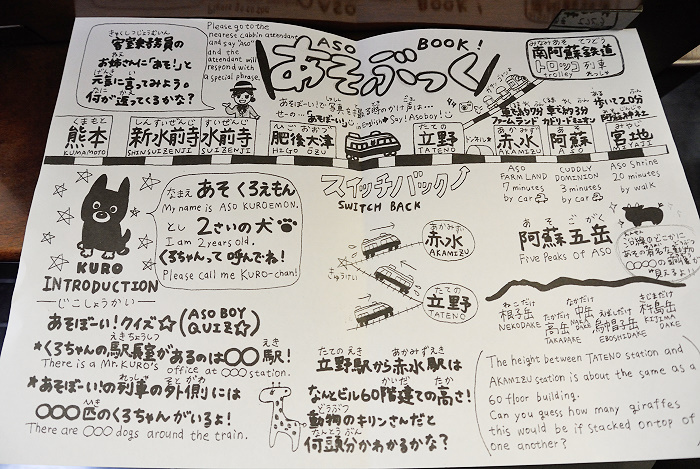 きゃくしつじょうむいん
客室乗務員の
お姉さんに「あそ!」と
元気に言ってみよう。
何が返ってくるかな?
Please go to the
nearest cabin attendant
and say "aso"
and the
attendant will
respond with
a special phrase.
ASO BOOK!
あそぶっく
みなみあそ てつどう
南阿蘇鉄道
トロッコ列車
trolley れっしゃ
せーの…
あそぼーい!
in English Say! Asoboy!
車で約7分
ファームランド
車で約3分
カドリー・ドミニオン
歩いて20分
阿蘇神社
くまもと
熊本
KUMAMOTO
しんすいぜんじ
新水前寺
SHINSUIZENJI
すいぜんじ
水前寺
SUIZENJI
ひごおおづ
肥後大津
HIGO OZU
たての
立野
TATENO
トンネル
あかみず
赤水
AKAMIZU
あそ
阿蘇
ASO
みやじ
宮地
MIYAJI
スイッチバック
SWITCH BACK
ASO
FARM LAND
7 minutes
by car
CUDDLY
DOMINION
3 minutes
by car
ASO Shrine
20 minutes
by walk
なまえ あそ くろえもん
My name is ASO KUROEMON.
とし 2さいの犬
I am 2 years old.
くろちゃんって呼んでね!
Please call me KURO-chan!
KURO
INTRODUCTION
―じこしょうかい―
あかみず
赤水
AKAMIZU
きゅうけい
たての
立野
TATENO
あそ ごがく
阿蘇五岳
Five Peaks of ASO
沿線のどこかに
あその有名な動物
〇〇〇〇の
が
見えるよ!
ねこだけ
根子岳
NEKODAKE
たかだけ
高岳
TAKADAKE
なかだけ
中岳
NAKADAKE
えぼしだけ
烏帽子岳
EBOSHIDAKE
きじまだけ
杵島岳
KIJIMADAKE
あそぼーい!クイズ☆(ASO BOY QUIZ☆)
えきちょうしつ
★くろちゃんの駅長室があるのは〇〇駅!
There is a Mr.KURO's office at 〇〇 station.
れっしゃ そとがわ
★あそぼーい!の列車の外側には
〇〇〇匹のくろちゃんがいるよ!
There are 〇〇〇 dogs around the train.
たてのえき あかみずえき
立野駅から赤水駅は
かいだ たか
なんとビル60階建ての高さ!
どうぶつ
動物のキリンさんだと
なんとうぶん
何頭分かわかるかな?
The height between TATENO station and
AKAMIZU station is about the same as a
60 floor building.
Can you guess how many giraffes
this would be if stacked on top of
one another?